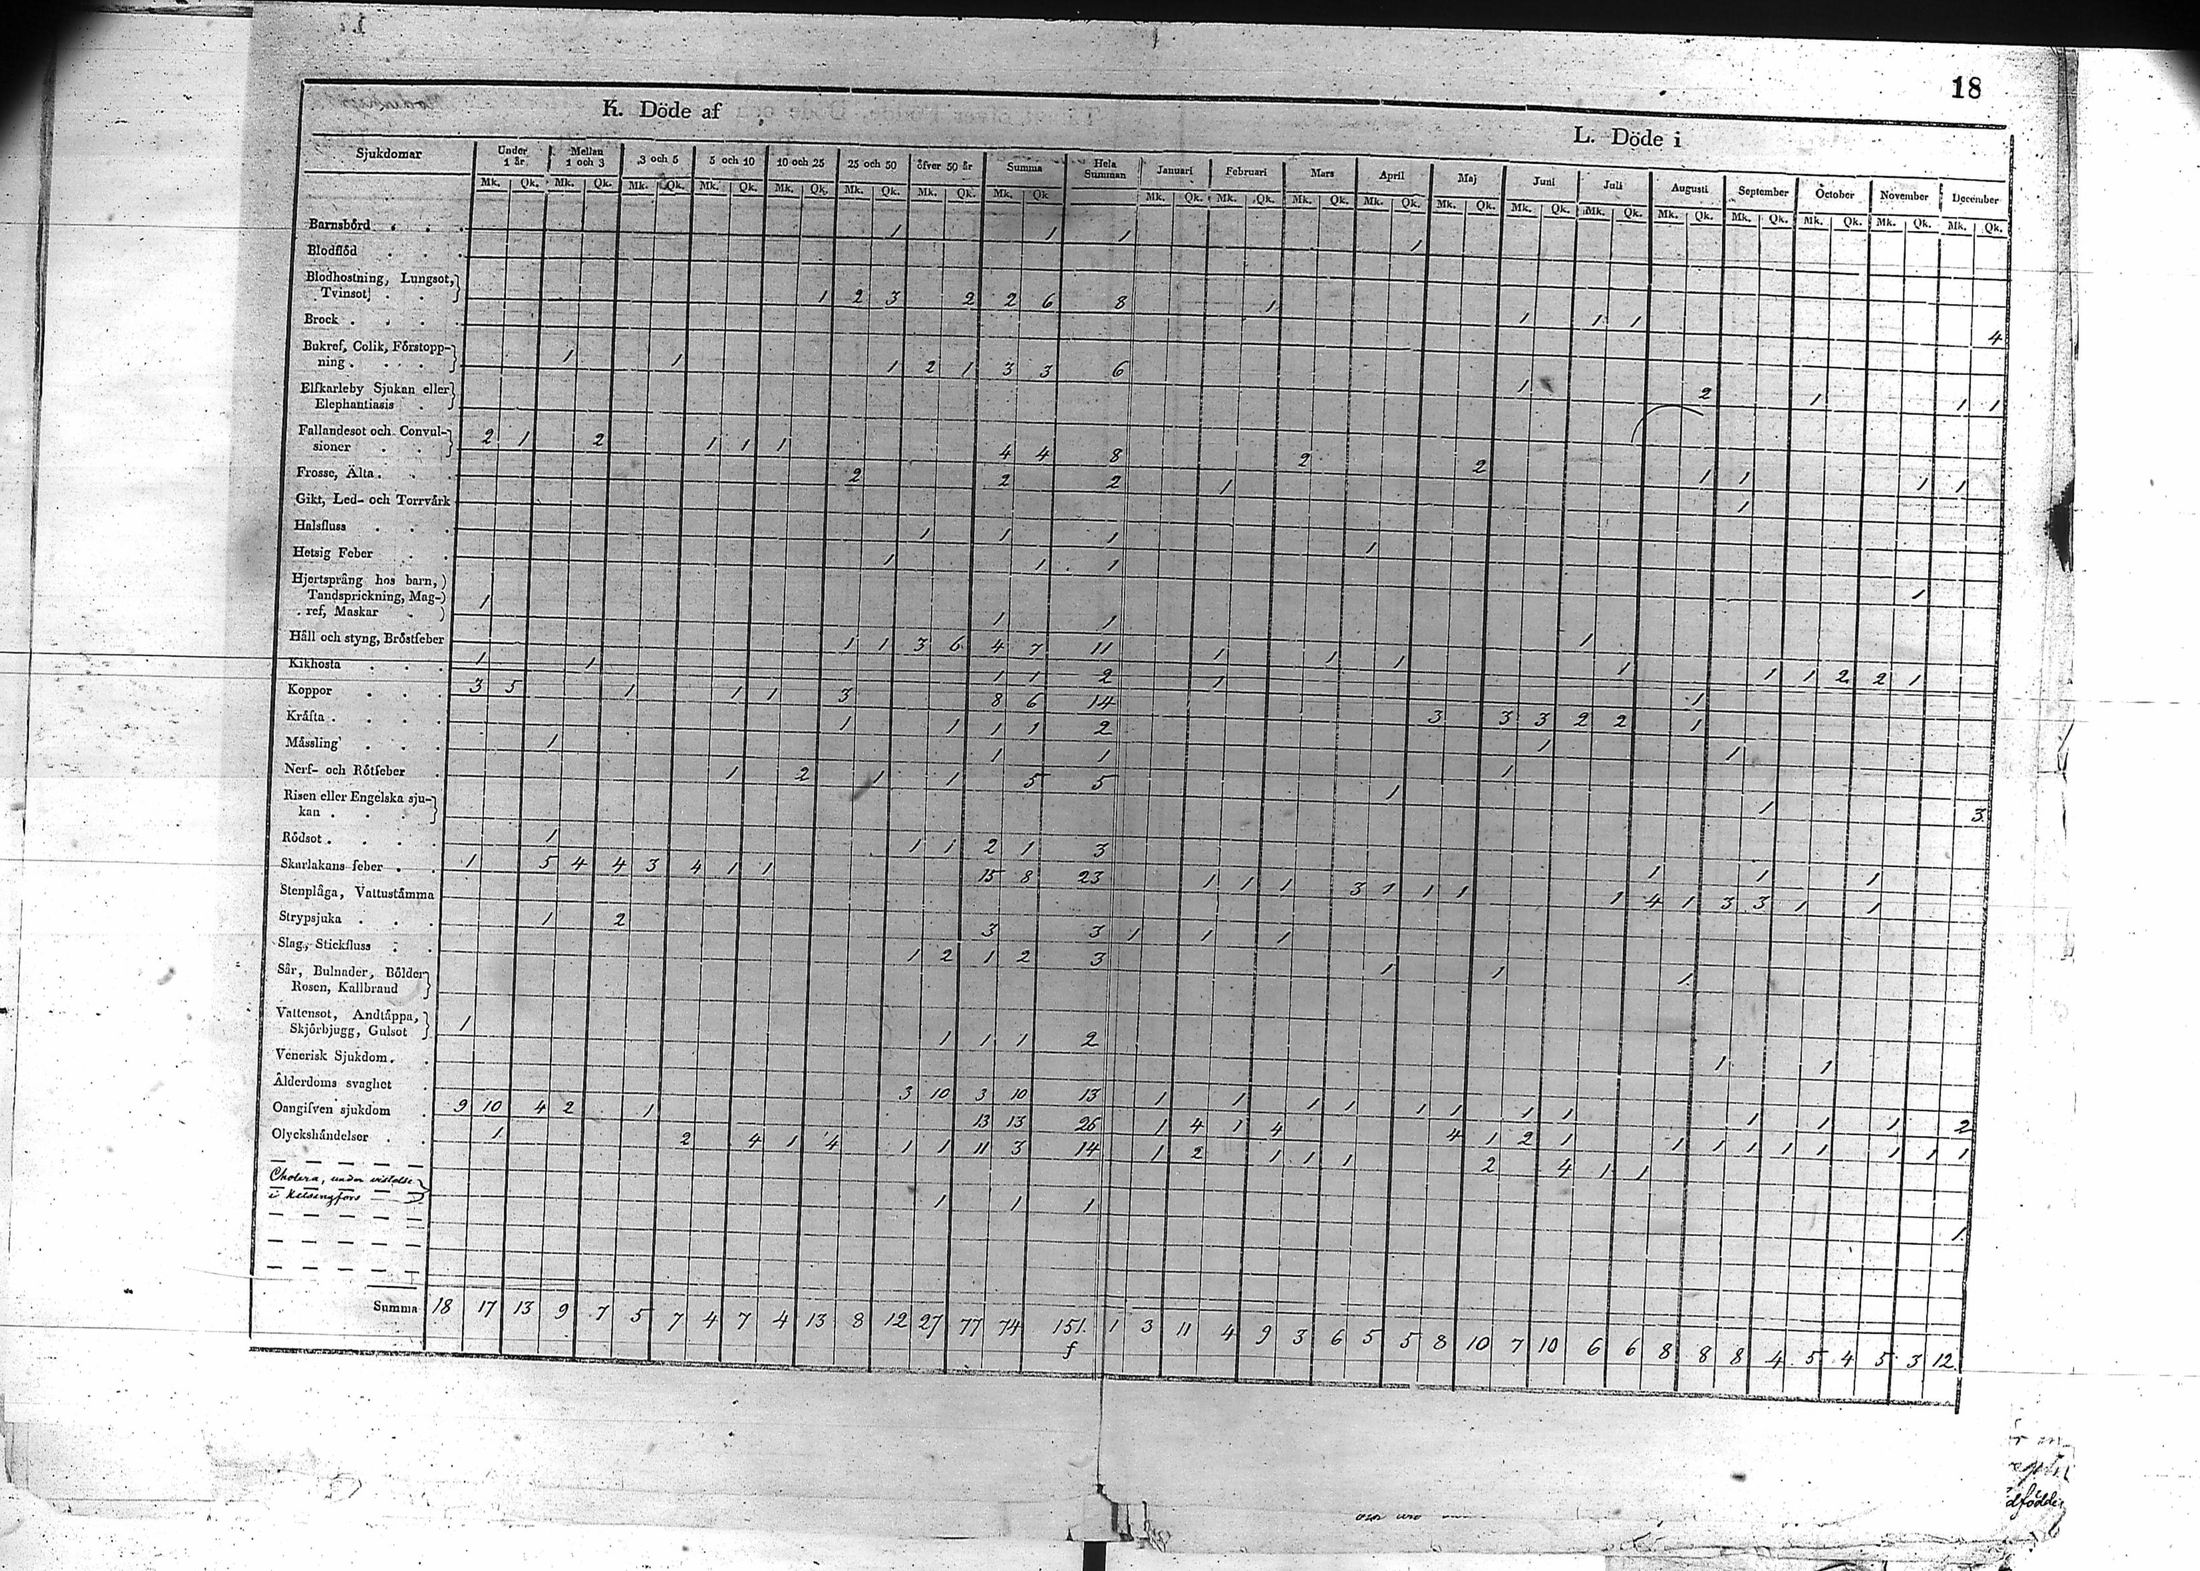 18
K. Döde af L. Döde i
Sjukdomar Under 1 år Mellan 1 och 3 3 och 5 5 och 10 10 och 25 25 och 50 öfver 50 år Summa Hela Summan Januari Februari Mars April Maj Juni Juli Augusti September October November December
Mk. Qk. Mk. Qk. Mk. Qk. Mk. Qk. Mk. Qk. Mk. Qk. Mk. Qk. Mk. Qk Mk. Qk. Mk. Qk. Mk. Qk. Mk. Qk. Mk. Qk. Mk. Qk. Mk. Qk. Mk. Qk. Mk. Qk. Mk. Qk. Mk. Qk. Mk. Qk.
Barnsbörd . . . 1 1 1 1
Blodflöd . . .
Blodhostning, Lungsot,
Tvinsot . . 1 2 3 2 2 6 8 1 1 1 1 4
Brock . . . .
Bukref, Colik, Förstopp-
ning . . . . 1 1 1 2 1 3 3 6 1 2 1 1 1
Elfkarleby Sjukan eller
Elephantiasis .
Fallandesot och Convul-
sioner . . 2 1 2 1 1 1 4 4 8 2 2 1 1 1 1
Frosse, Älta . . . 2 2 2 1 1
Gikt, Led- och Torrvärk
Halsfluss . . . 1 1 1 1
Hetsig Feber . . 1 1 1 1
Hjertsprång hos barn,
Tandsprickning, Mag-
ref, Maskar . 1 1 1 1
Håll och styng, Bröstfeber 1 1 3 6 4 7 11 1 1 1 1 1 1 2 2 1
Kikhosta . . . 1 1 1 1 2 1 1
Koppor . . . 3 5 1 1 1 3 8 6 14 3 3 3 2 2 1
Kräfta . . . . 1 1 1 1 2 1 1
Måssling . . . 1 1 1 1
Nerf- och Rötfeber . 1 2 1 1 5 5 1 1 3
Risen eller Engelska sju-
kan . . .
Rödsot . . . . 1 1 1 2 1 3 1 1 1
Skarlakans feber . . 1 5 4 4 3 4 1 1 15 8 23 1 1 1 3 1 1 1 1 4 1 3 3 1 1
Stenplåga, Vattustämma
Strypsjuka . . . 1 2 3 3 1 1 1
Slag, Stickfluss . . 1 2 1 2 3 1 1 1
Sår, Bulnader, Bölder
Rosen, Kallbrand
Vattensot, Andtäppa,
Skjörbjugg, Gulsot 1 1 1 1 2 1 1
Venerisk Sjukdom . .
Ålderdoms svaghet . 3 10 3 10 13 1 1 1 1 1 1 1 1 1 1 1 2
Oangifven sjukdom . 9 10 4 2 1 13 13 26 1 4 1 4 4 1 2 1 1 1 1 1 1 1 1 1
Olyckshändelser . . 1 2 4 1 4 1 1 11 3 14 1 2 1 1 1 2 4 1 1
Cholera, under vistelse
i Helsingfors 1 1 1 1
Summa 18 17 13 9 7 5 7 4 7 4 13 8 12 27 77 74 151. 1 3 11 4 9 3 6 5 5 8 10 7 10 6 6 8 8 8 4 5 4 5 3 12